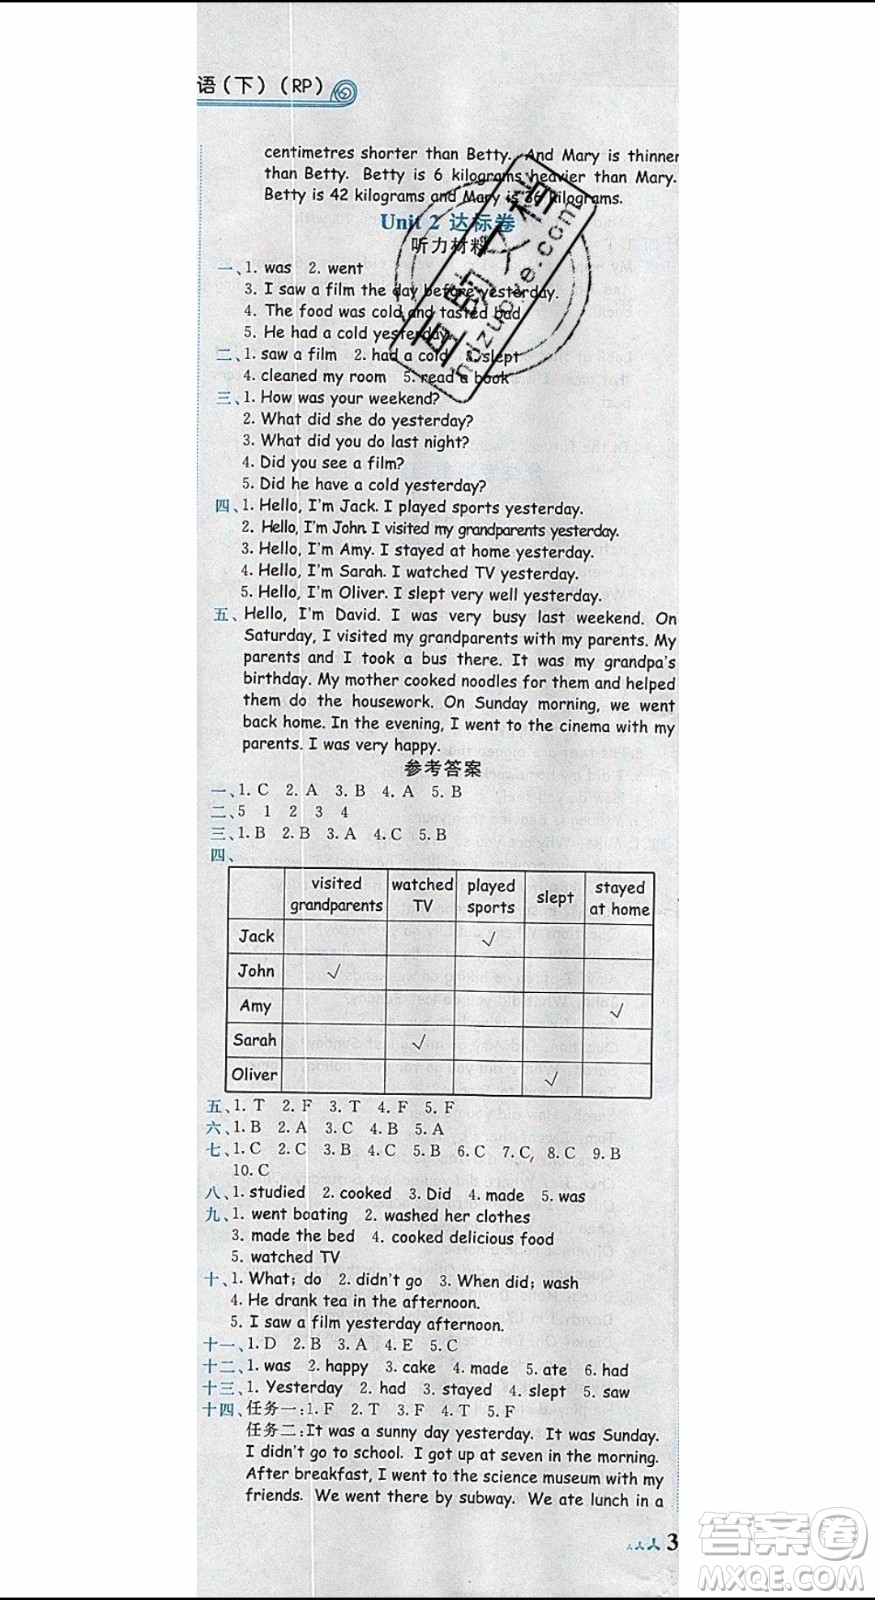 语(下)(RP)
centimetres shorter than Betty. And Mary is thinner
than Betty. Betty is 6 kilograms heavier than Mary.
Betty is 42 kilograms and Mary is 36 kilograms.
Unit 2 达标卷
听力材料
一、1. was 2. went
3. I saw a film the day before yesterday.
4. The food was cold and tasted bad.
5. He had a cold yesterday.
二、1. saw a film 2. had a cold 3. slept
4. cleaned my room 5. read a book
三、1. How was your weekend?
2. What did she do yesterday?
3. What did you do last night?
4. Did you see a film?
5. Did he have a cold yesterday?
四、1. Hello, I'm Jack. I played sports yesterday.
2. Hello, I'm John. I visited my grandparents yesterday.
3. Hello, I'm Amy. I stayed at home yesterday.
4. Hello, I'm Sarah. I watched TV yesterday.
5. Hello, I'm Oliver. I slept very well yesterday.
五、Hello, I'm David. I was very busy last weekend. On
Saturday, I visited my grandparents with my parents. My
parents and I took a bus there. It was my grandpa's
birthday. My mother cooked noodles for them and helped
them do the housework. On Sunday morning, we went
back home. In the evening, I went to the cinema with my
parents. I was very happy.
参考答案
一、1. C 2. A 3. B 4. A 5. B
二、5 1 2 3 4
三、1. B 2. B 3. A 4. C 5. B
四、
visited grandparents watched TV played sports slept stayed at home
Jack ✓
John ✓
Amy ✓
Sarah ✓
Oliver ✓
五、1. T 2. F 3. T 4. F 5. F
六、1. B 2. A 3. C 4. B 5. A
七、1. C 2. C 3. B 4. C 5. B 6. C 7. C 8. C 9. B
10. C
八、1. studied 2. cooked 3. Did 4. made 5. was
九、1. went boating 2. washed her clothes
3. made the bed 4. cooked delicious food
5. watched TV
十、1. What; do 2. didn't go 3. When did; wash
4. He drank tea in the afternoon.
5. I saw a film yesterday afternoon.
十一、1. D 2. B 3. A 4. E 5. C
十二、1. was 2. happy 3. cake 4. made 5. ate 6. had
十三、1. Yesterday 2. had 3. stayed 4. slept 5. saw
十四、任务一:1. F 2. T 3. F 4. T 5. F
任务二:It was a sunny day yesterday. It was Sunday.
I didn't go to school. I got up at seven in the morning.
After breakfast, I went to the science museum with my
friends. We went there by subway. We ate lunch in a
3
答案卷
MXQE.COM